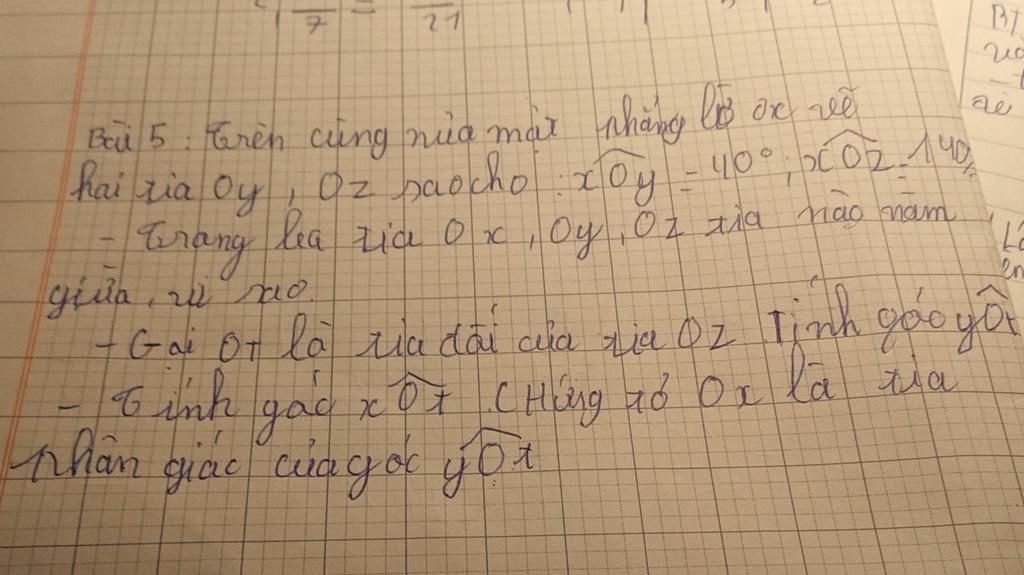 7 = 21
Bài 5: Trên cùng nửa mặt phẳng bờ Ox vẽ
hai tia Oy, Oz sao cho: xOy = 40°; xOz = 140°
- Trong ba tia Ox, Oy, Oz tia nào nằm
giữa, vì sao.
- Gọi Ot là tia đối của tia Oz Tính góc yOt
- Tính góc xOt. CHứng tỏ Ox là tia
phân giác của góc yOt
BT